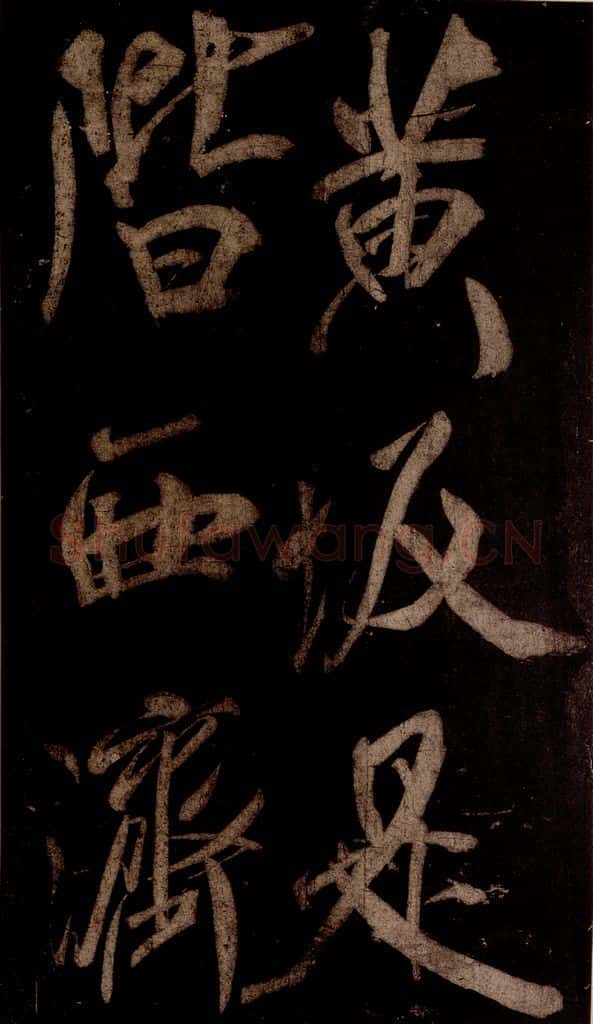 黄板是
階西濟
Shufawang.CN